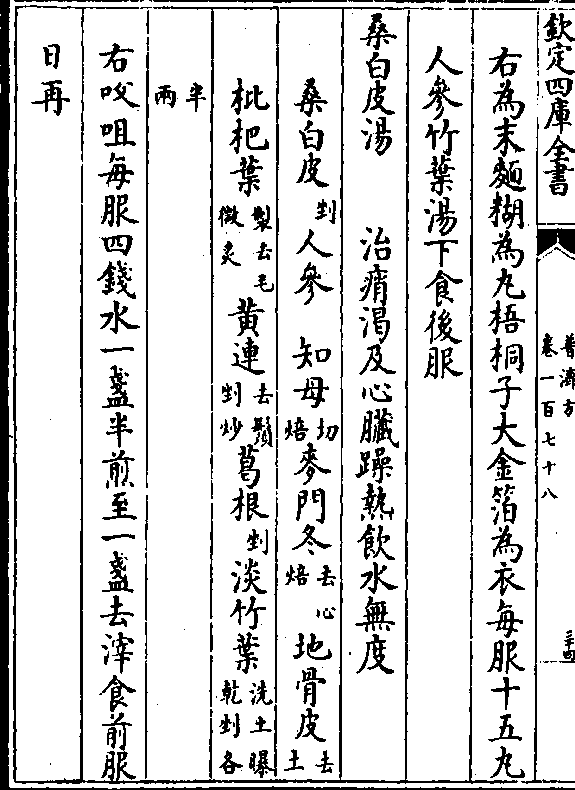 欽定四庫全書
普濟方
卷一百七十八
三十四
右為末麵糊為丸梧桐子大金箔為衣每服十五丸
人參竹葉湯下食後服
桑白皮湯 治痟渴及心臟躁熱飲水無度
桑白皮剉人參 知母切焙麥門冬去心焙地骨皮去土
枇杷葉製去毛微炙黃連去鬚剉炒葛根剉淡竹葉洗土曝乾剉各
半兩
右㕮咀每服四錢水一盞半煎至一盞去滓食前服
日再